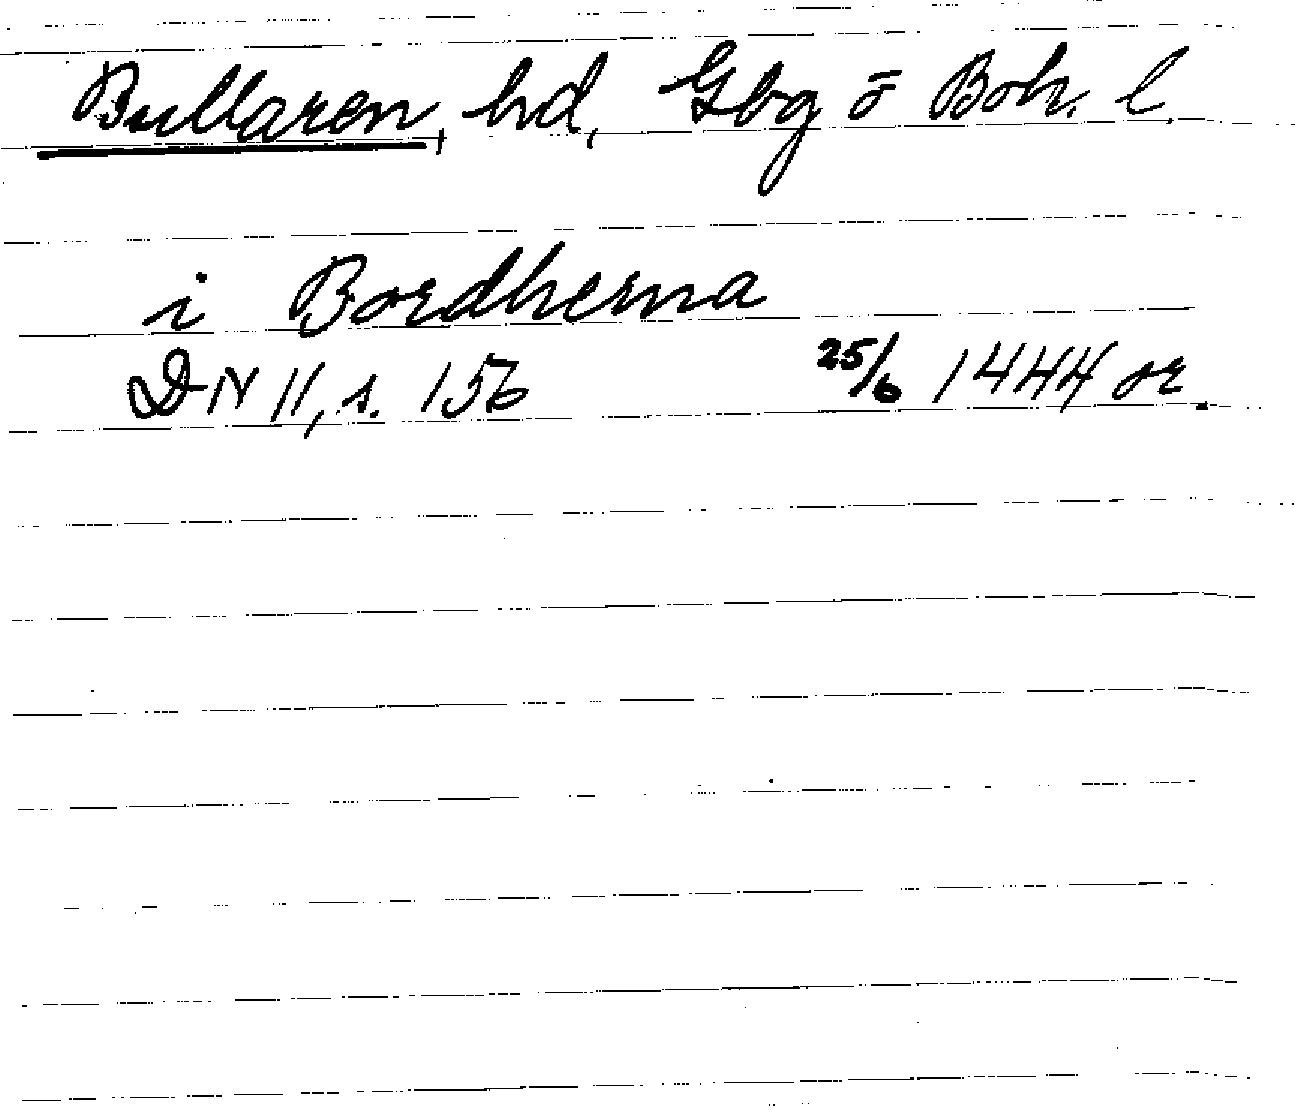 Bullaren, hd, Gbg o Boh. l.
i Bordherna
DN 11, s. 156 25/6 1444 or.